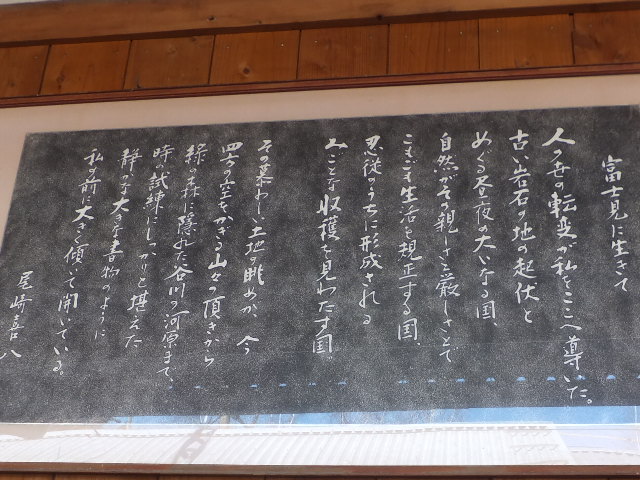 富士見に生きて
人の世の転変が私をここへ導いた。
古い岩石の地の起伏と
めぐる昼夜の大いなる国、
自然がその親しさと厳しさとで
こもごも生活を規正する国、
忍従のうちに形成される
みごとな収穫を見わたす国。
その慕わしい土地の眺めが、今
四方の空をかぎる山々の頂きから
緑の森に隠れた谷川の河原まで、
時の試練にしっかりと堪えた
静かな大きな書物のように
私の前に大きく傾いて開いている。
尾崎喜八